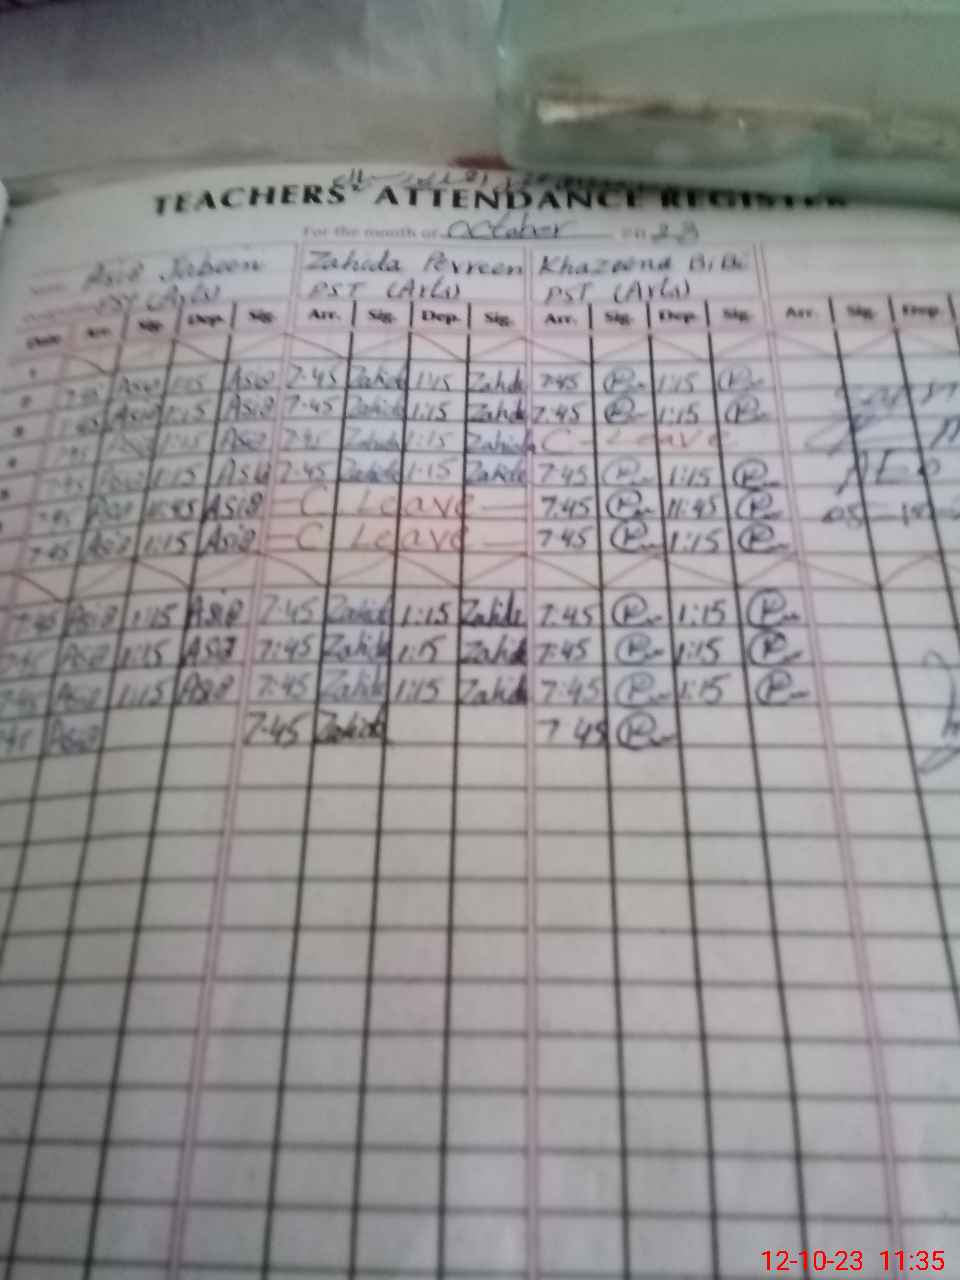 TEACHERS' ATTENDANCE REGISTER
For the month of October 2023
Asia Jabeen Zahida Perveen Khazeena BiBi
PST (Arts) PST (Arts) PST (Arts)
Date Arr. Sig. Dep. Sig. Arr. Sig. Dep. Sig. Arr. Sig. Dep. Sig. Arr. Sig. Dep.
1
2 7:45 Asia 1:15 Asia 7:45 Zahida 1:15 Zahida 7:45 1:15
3 7:45 Asia 1:15 Asia 7:45 Zahida 1:15 Zahida 7:45 1:15
4 7:45 Asia 1:15 Asia 7:45 Zahida 1:15 Zahida C-Leave
7:45 Asia 1:15 Asia 7:45 Zahida 1:15 Zahida 7:45 1:15 AEO
7:45 Asia 11:45 Asia C Leave 7:45 11:45
7:45 Asia 1:15 Asia C Leave 7:45 1:15
7:45 Asia 1:15 Asia 7:45 Zahida 1:15 Zahida 7:45 1:15
7:45 Asia 1:15 Asia 7:45 Zahida 1:15 Zahida 7:45 1:15
7:45 Asia 1:15 Asia 7:45 Zahida 1:15 Zahida 7:45 1:15
7:45 Asia 7:45 Zahida 7:45
12-10-23 11:35